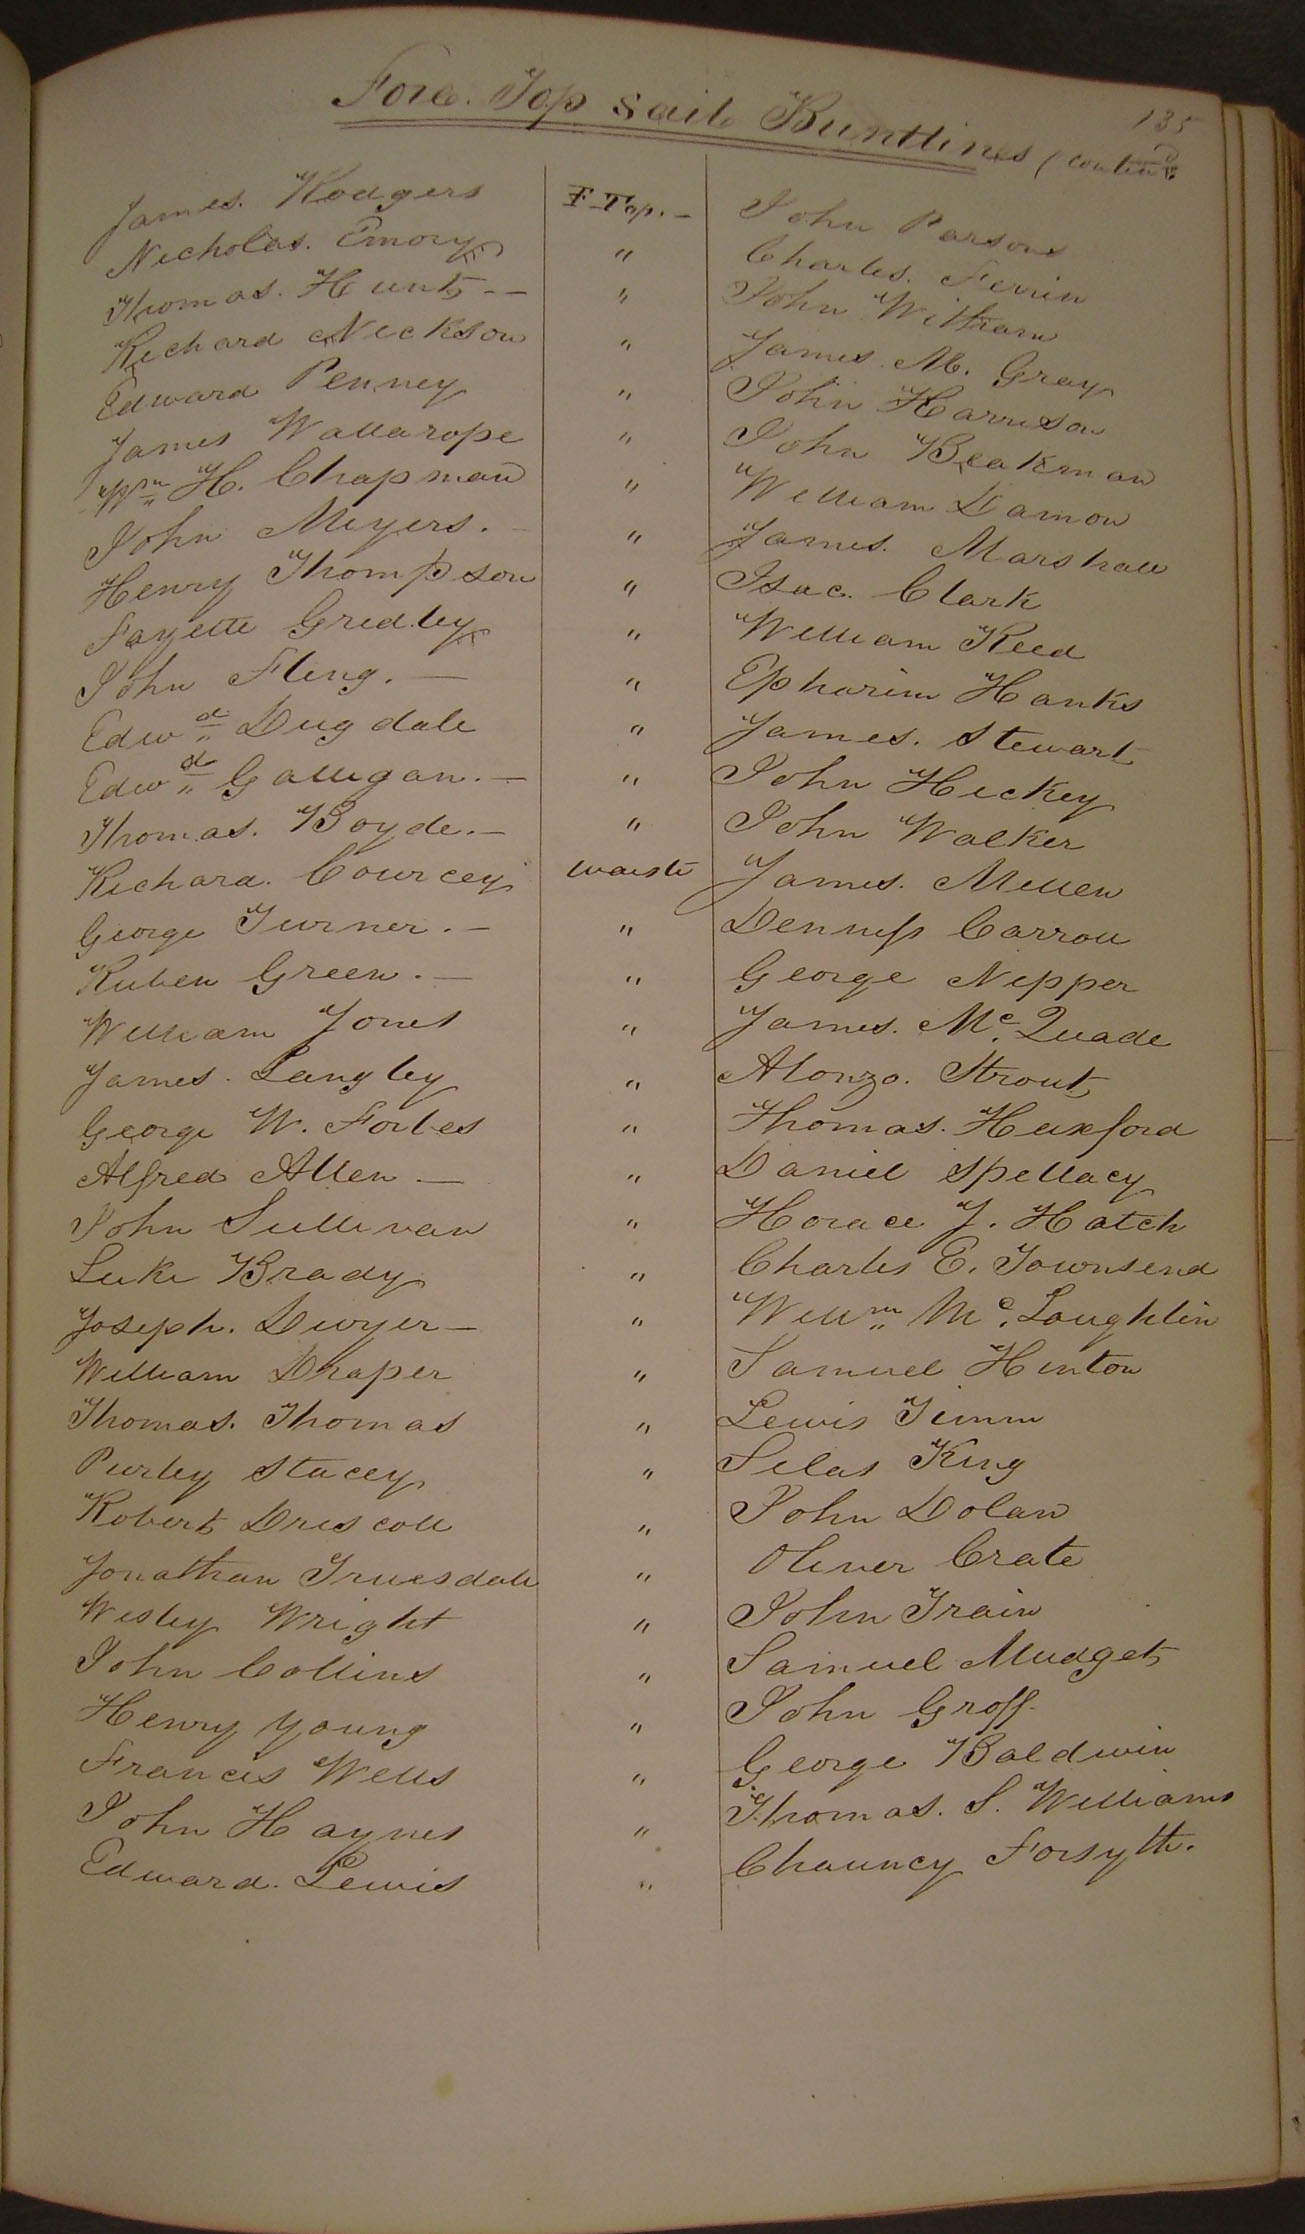 135
Fore. Top sail Buntlines (Contin.d
James. Rodgers F-Top.- John Parsons
Nicholas. Emory " Charles. Ferrin
Thomas. Hunt -- " John Witham
Richard Nickson " James. M. Gray
Edward Penney " John Harrison
James Wallarope " John Beakman
Wm H. Chapman " William Damon
John Meyers. - " James. Marshall
Henry Thompson " Isac. Clark
Fayette Gridley " William Reed
John Fling. — " Epharim Hanks
Edwd Dugdale " James. Stewart
Edwd Galligan. - " John Hickey
Thomas. Boyde. - " John Walker
Richard. Courcey waiste James. Millen
George Turner. - " Denniss Carroll
Ruben Green. — " George Nipper
William Jones " James. Mc. Quade
James. Langley " Alonzo. Strout
George W. Forbes " Thomas. Huxford
Alfred Allen — " Daniel Spellacy
John Sullivan " Horace J. Hatch
Luke Brady " Charles E. Townsend
Joseph. Dwyer - " Willm Mc. Loughlin
William Draper " Samuel Hinton
Thomas. Thomas " Lewis Timm
Purley Stacey " Silas King
Robert Driscoll " John Dolan
Jonathan Truesdale " Oliver Crate
Wesley Wright " John Train
John Collins " Samuel Mudget
Henry Young " John Groff.
Francis Wells " George Baldwin
John Haynes " Thomas. S. Williams
Edward. Lewis " Chauncy Forsyth.